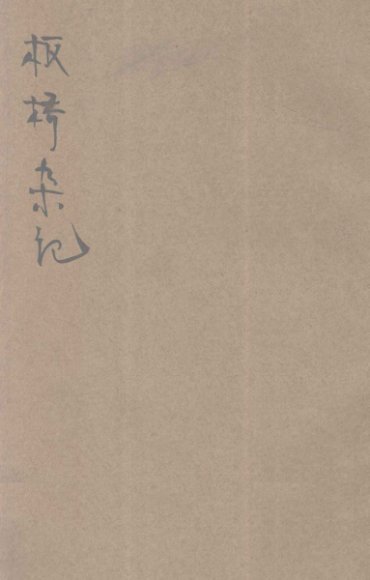 板桥杂记